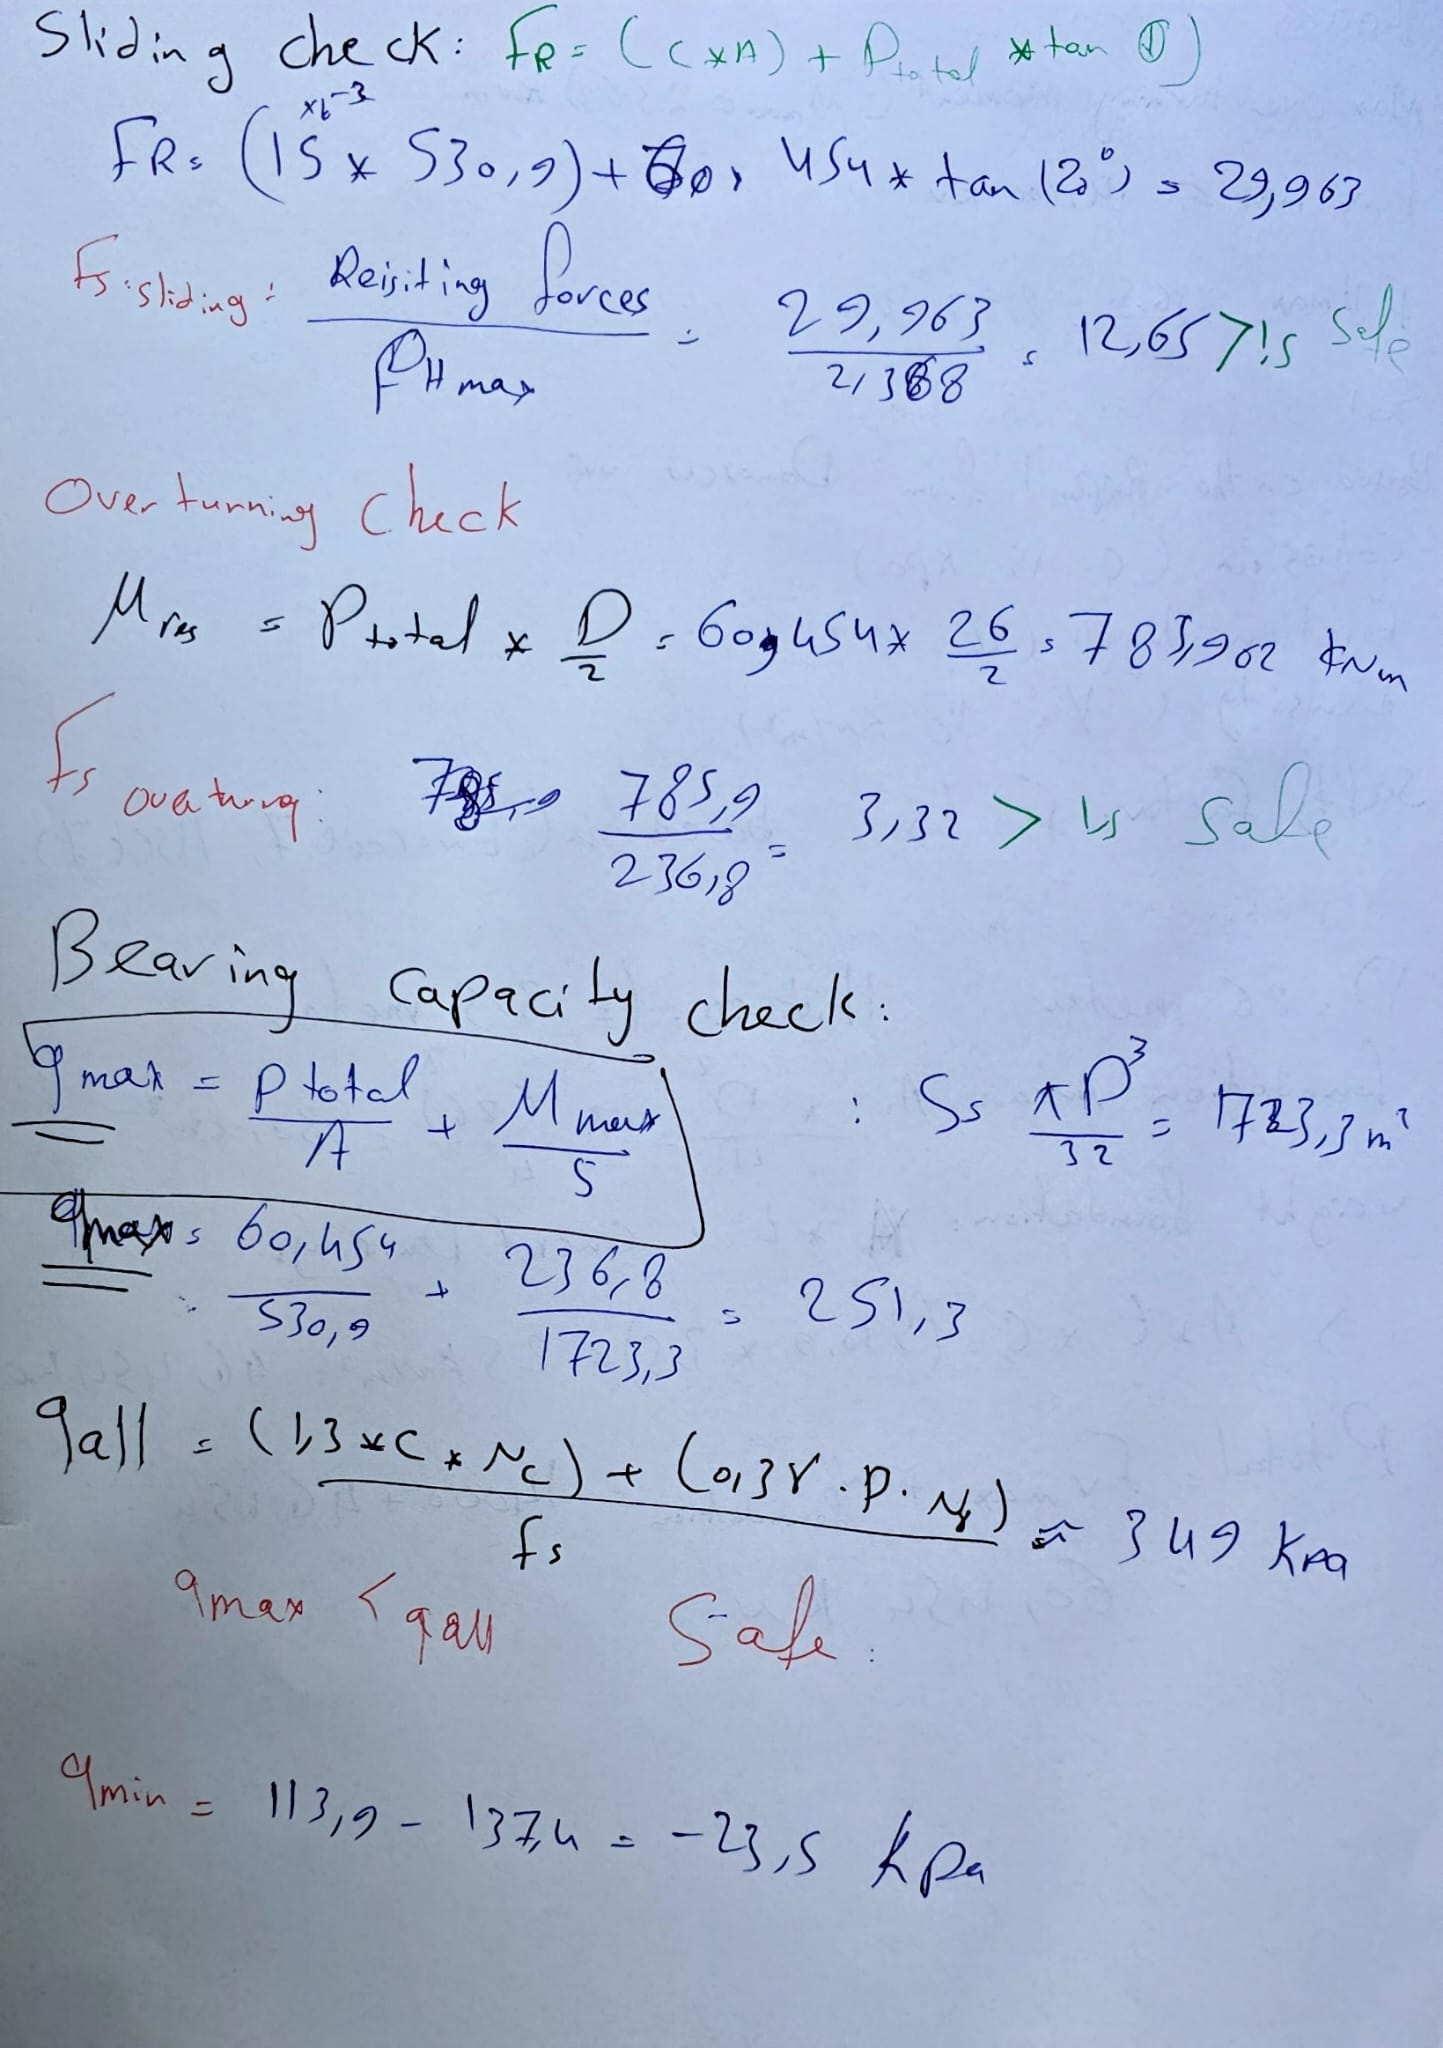 Sliding check: FR = ( (C*A) + Ptotal * tan Φ )
x10^-3
FR = (15 * 530,9) + 60, 454 * tan (20°) = 29,963
Fs.sliding: Reisiting forces / PH max = 29,963 / 2,368 = 12,65 > 1,5 Safe
Overturning Check
M res = Ptotal * D/2 = 60,454 * 26/2 = 785,902 kNm
Fs overturng: 785,9 / 236,8 = 3,32 > 1,5 Safe
Bearing capacity check:
q max = P total / A + M max / S : S = πD³/32 = 1723,3 m³
qmax = 60,454 / 530,9 + 236,8 / 1723,3 = 251,3
qall = (1,3 * C * Nc) + (0,3γ . D . Nγ) / fs ≈ 349 Kpa
qmax < qall Safe.
qmin = 113,9 - 137,4 = -23,5 Kpa